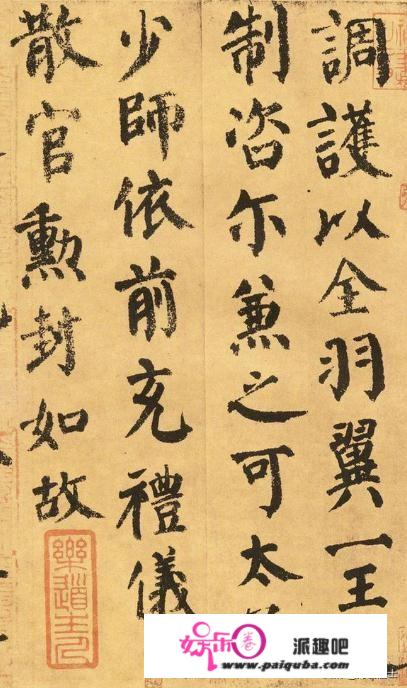 調護以全羽翼一王
制咨尒兼之可太
少師依前充禮儀
散官勳封如故
樂道主人
娱乐圈
派趣吧
www.paiquba.com